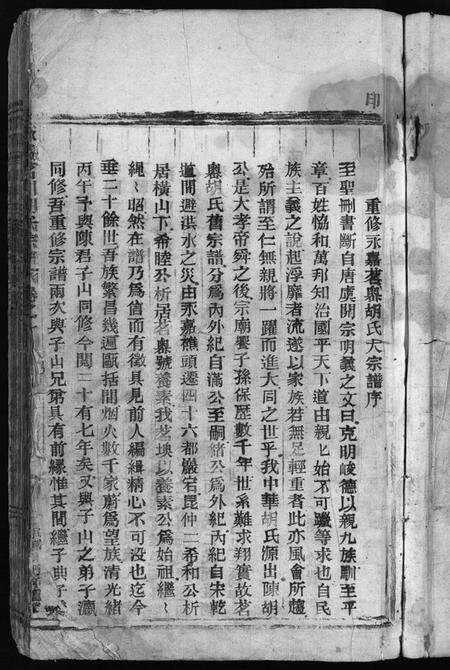 印
重修永嘉茗嶴胡氏大宗譜序
至聖刪書斷自唐虞開宗明義之文曰克明峻德以親九族馴至平
章百姓恊和萬邦知治國平天下道由親乚始不可躐等求也自民
族主義之說起浮靡者流遂以家族若無足輕重者此亦風會所趨
殆所謂至仁無親將一躍而進大同之世乎我中華胡氏源出陳胡
公是大孝帝舜之後宗廟饗子孫保歷數千年世系難求翔實故茗
嶴胡氏舊宗譜分為內外紀自滿公至嗣緒公為外紀內紀自宋乾
道間避洪水之災由永嘉樵頭遷四十六都巖宕昆仲二希和公析
居橫山下希睦公析居茗嶴號養素我茗墺以養素公為始祖繼乚
繩乚昭然在譜乃為信而有徵具見前人編緝精心不可沒也迄今
垂二十餘世吾族繁昌幾遍甌括間烟火數千家蔚為望族清光緒
丙午予與陳君子山同修今閱二十有七年矣又與子山之弟子灜
同修吾重修宗譜兩次與子山兄第具有前緣惟其間繼子典子